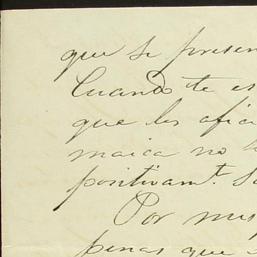 que se presen
Cuando te es
que les ofic
maica no
positivamt. S
Por mis
penas que